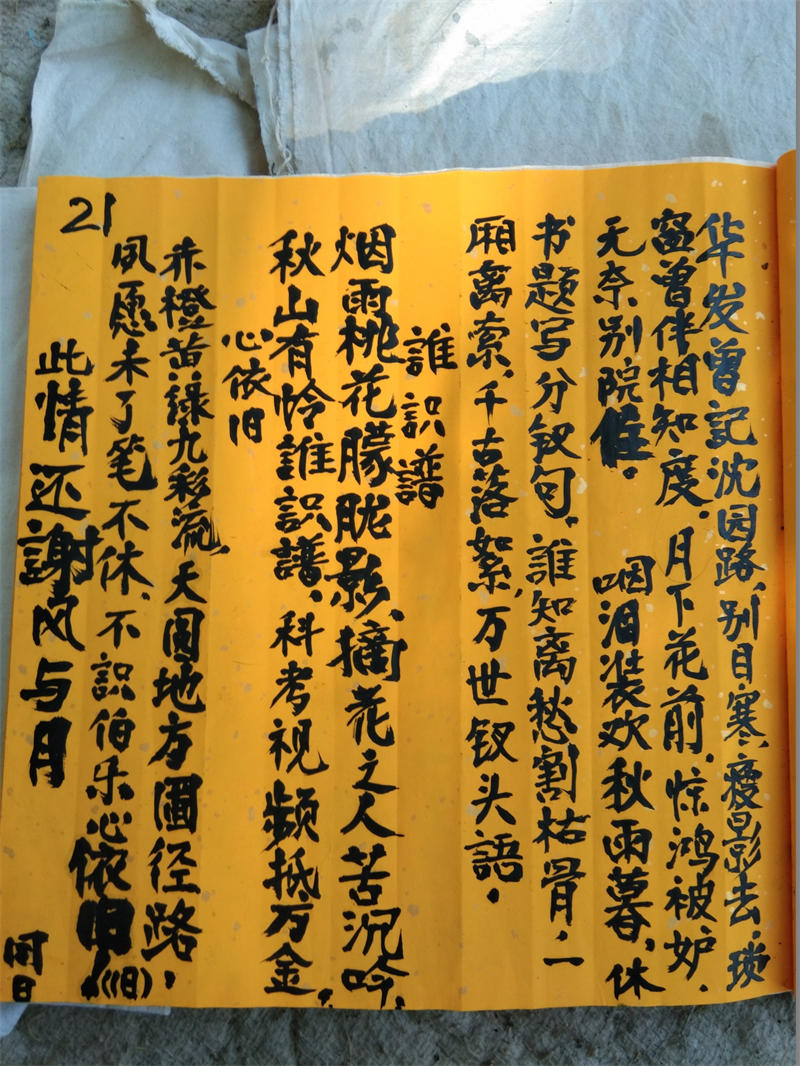 华发曾记沈园路,别目寒,瘦影去,琐
窗曾伴相知度。月下花前,惊鸿被妒,
无奈别院住。 咽泪装欢秋雨暮,休
书题写分钗句,誰知离愁割枯骨,一
厢离索,千古落絮,万世钗头語。
誰識譜
烟雨桃花朦胧影,摘花之人苦沉吟,
秋山有怜誰識譜,科考视频抵万金,
心依旧
赤橙黄绿九彩流,天圆地方圆径路,
夙愿未了笔不休,不識伯乐心依旧(旧)
此情还謝风与月
同日
21